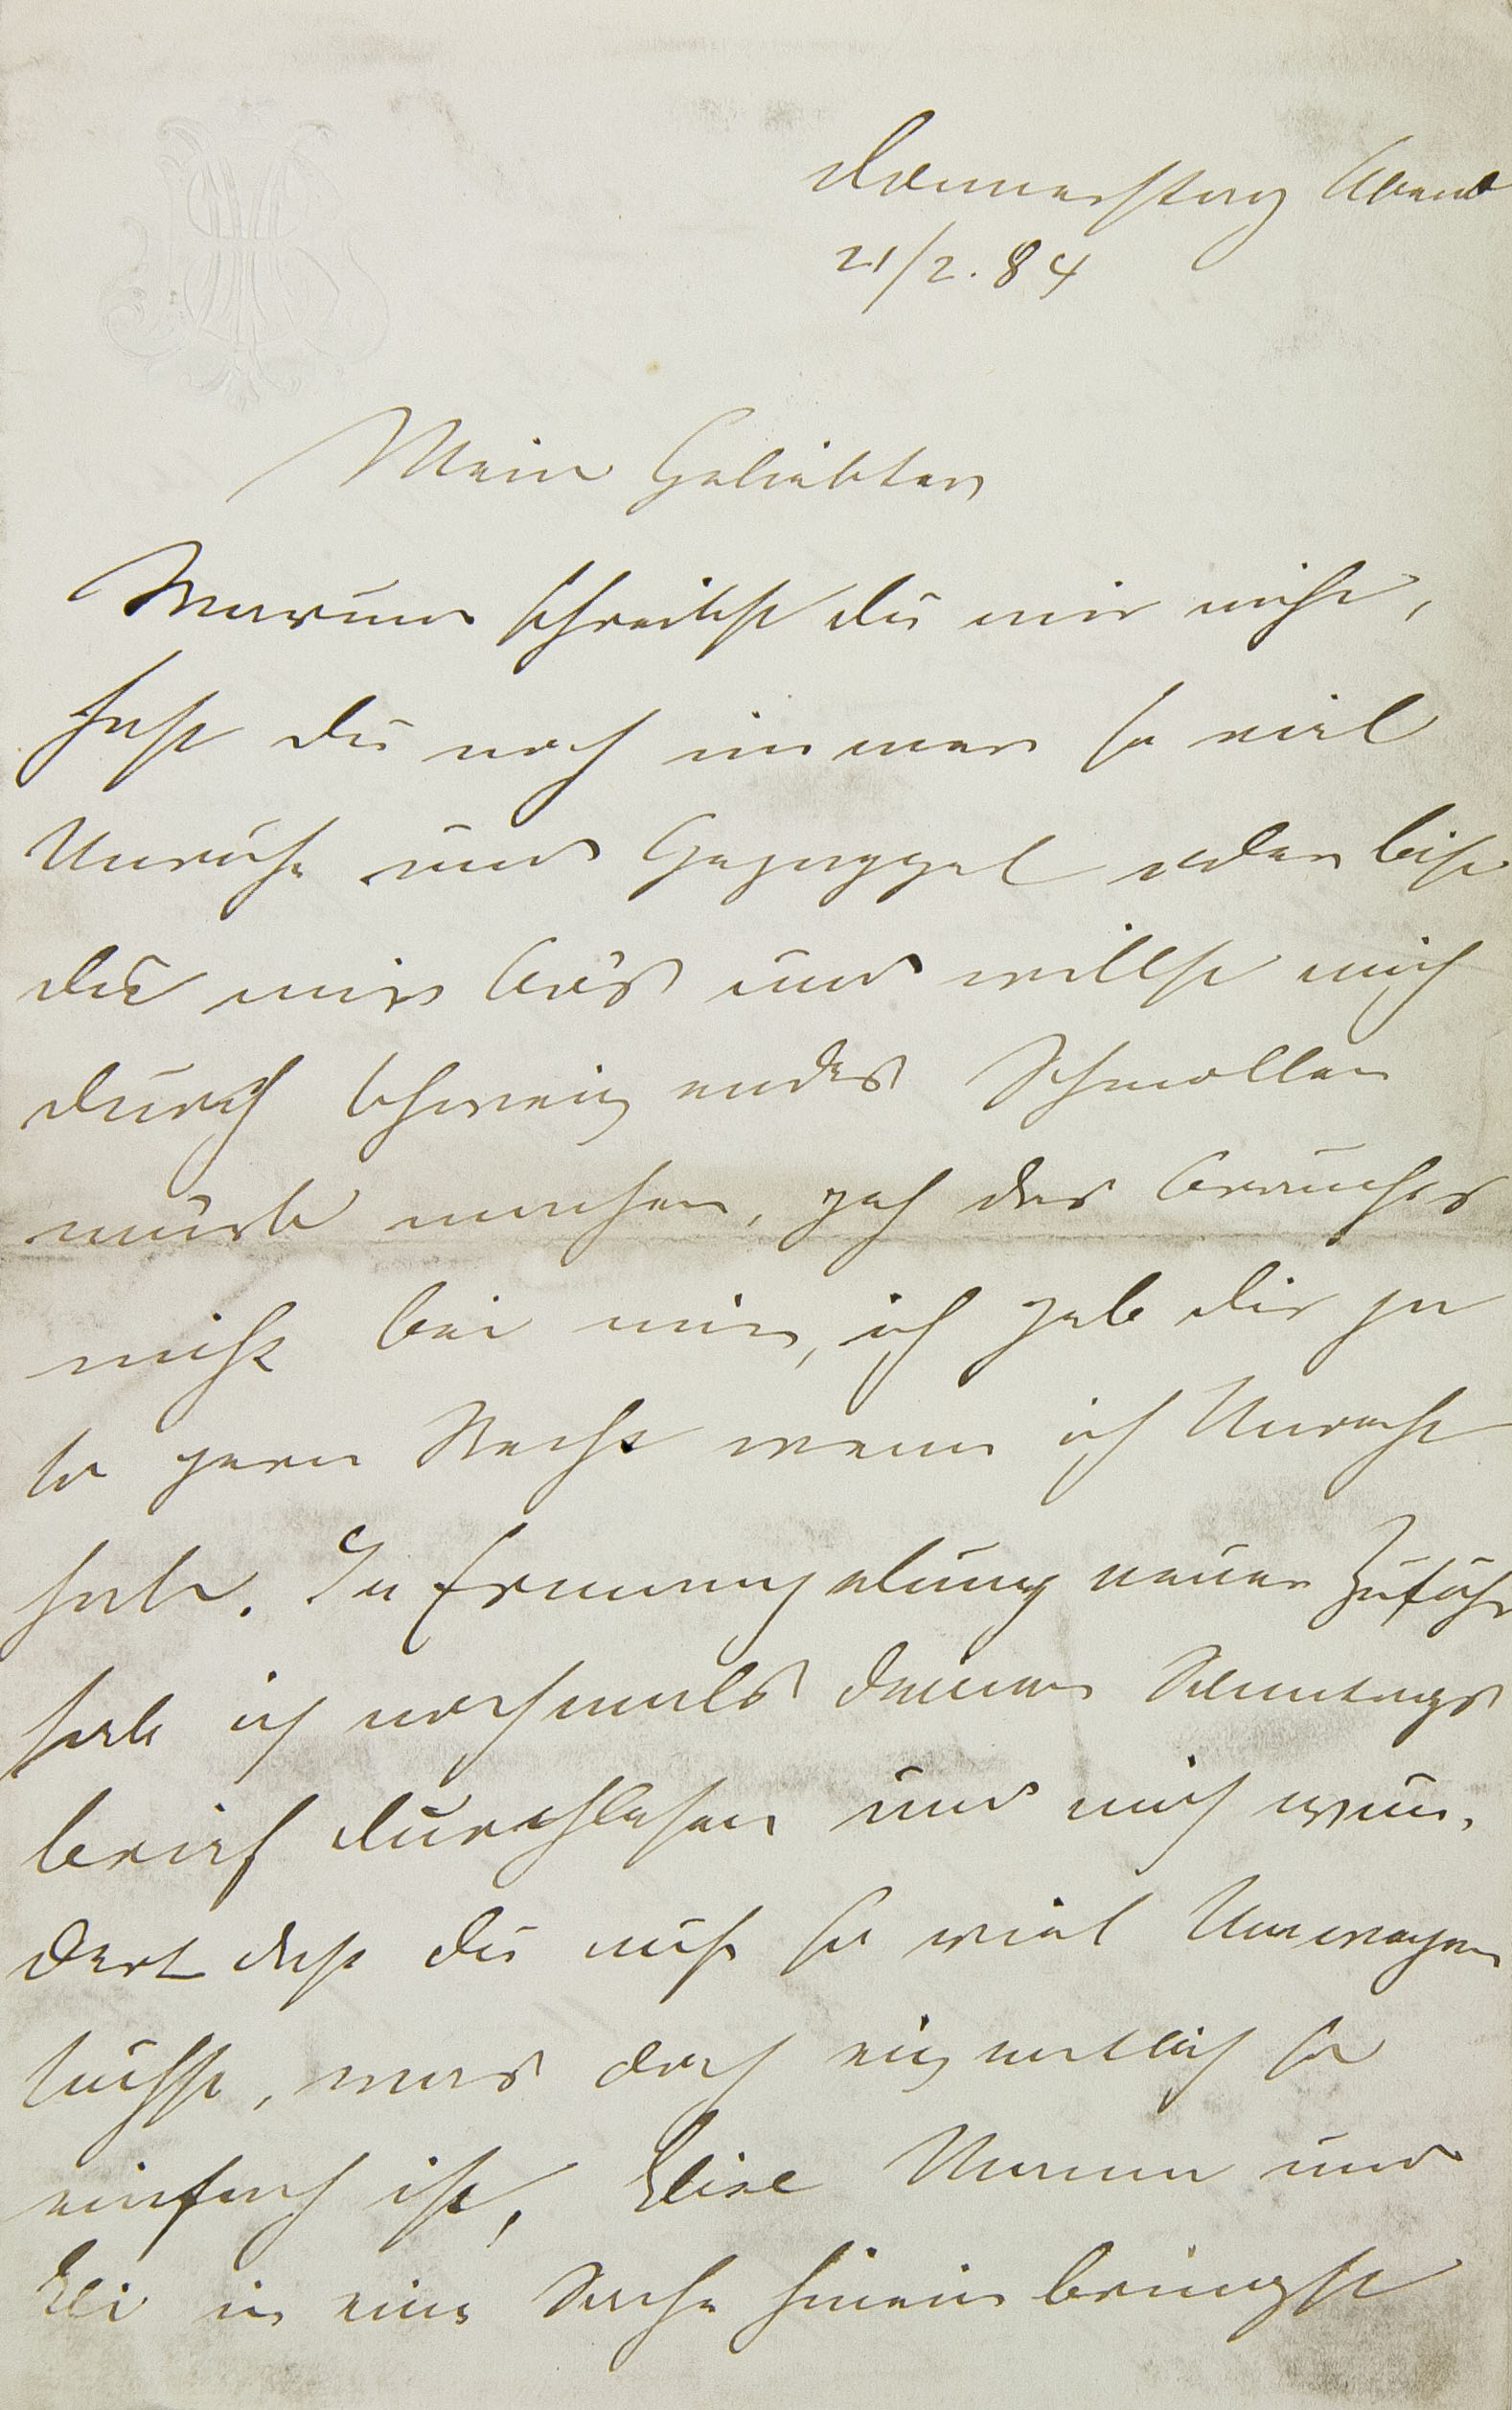 Donnerstag Abend
21/2. 84
Mein Geliebter
Warum schreibst du mir nicht,
hast du noch immer so viel
Unruhe und Gezappel oder bist
du mir bös und willst mich
durch schweigendes Schmollen
mürb machen, geh das brauchts
nicht bei mir, ich geb dir ja
so gern Recht wenn ich Unrecht
hab. In Ermangelung neuer Zufuhr
hab ich nochmals deinen Samstags
brief durchlesen und mich wun-
dert daß du auf so viel Umwegen
suchst, was doch eigentlich so
einfach ist, Elise Mama und
Eli in eine Sache hinein bringst